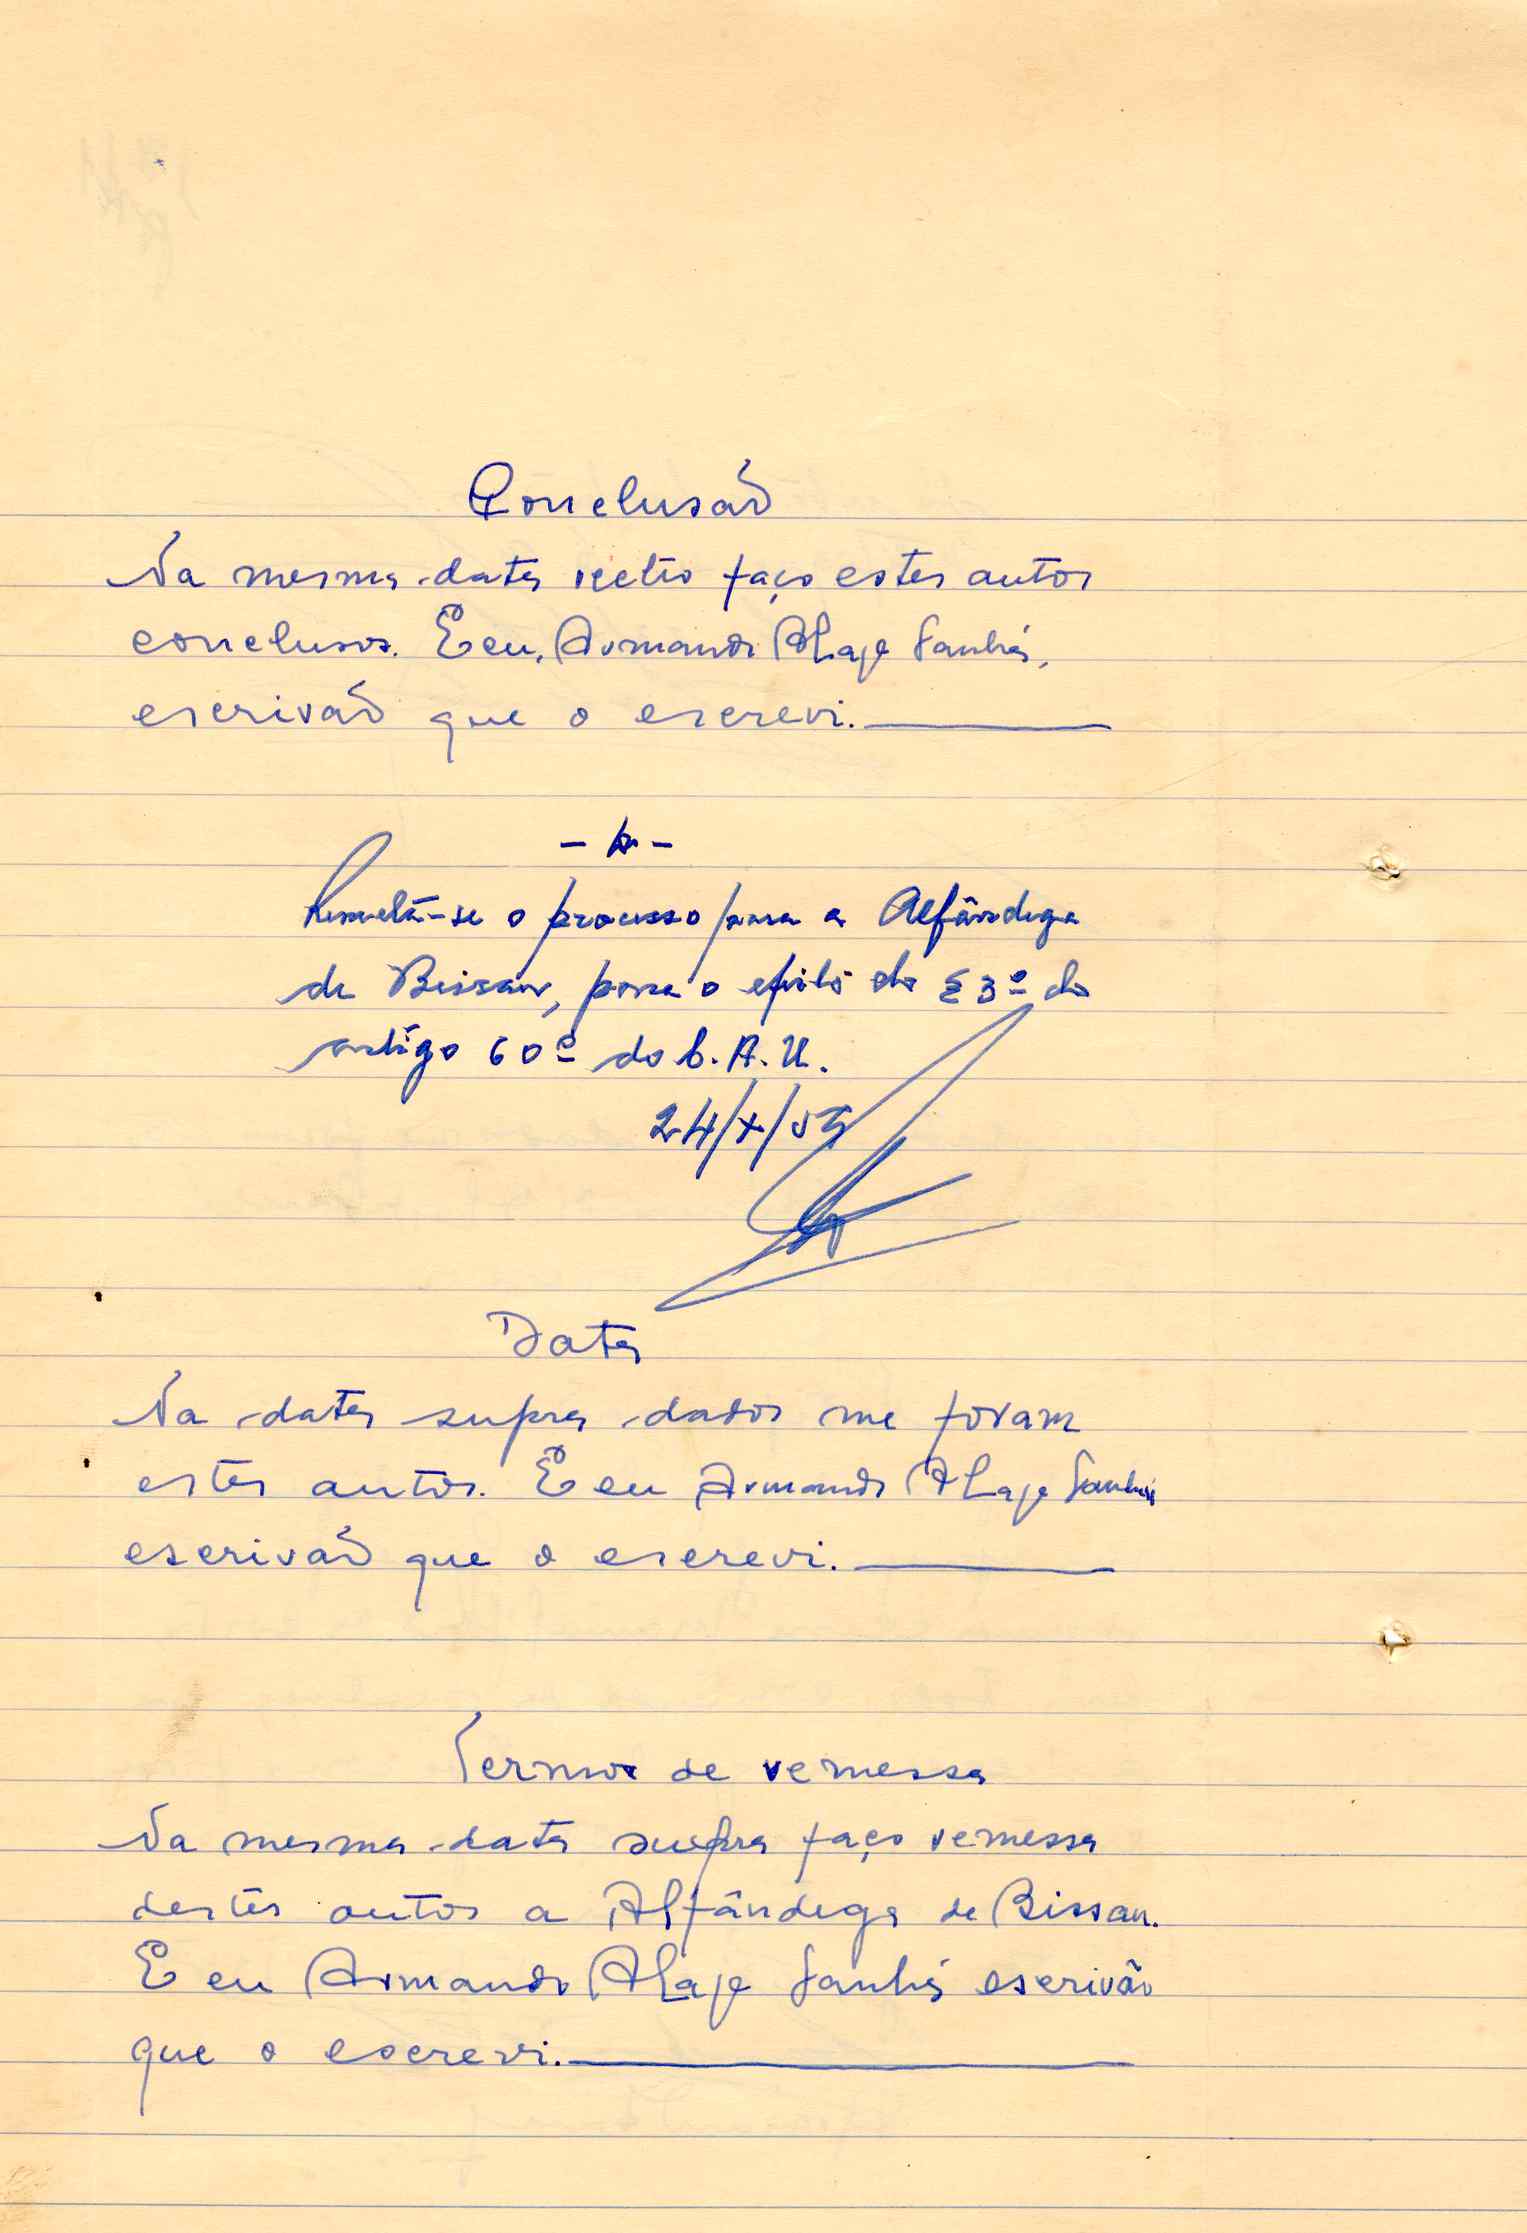 Conclusão
Na mesma data retro faço estes autos
conclusos. E eu, Armando Alage Sanhá,
escrivão que o escrevi.
Remetá-se o processo para a Alfândega
de Bissau, para o efeito do § 3º do
artigo 60º do C. A. U.
24/X/53
Data
Na data supra dados me foram
estes autos. E eu Armando Alage Sanhá
escrivão que o escrevi.
Termos de remessa
Na mesma data supra faço remessa
destes autos a Alfândega de Bissau.
E eu Armando Alage Sanhá escrivão
que o escrevi.